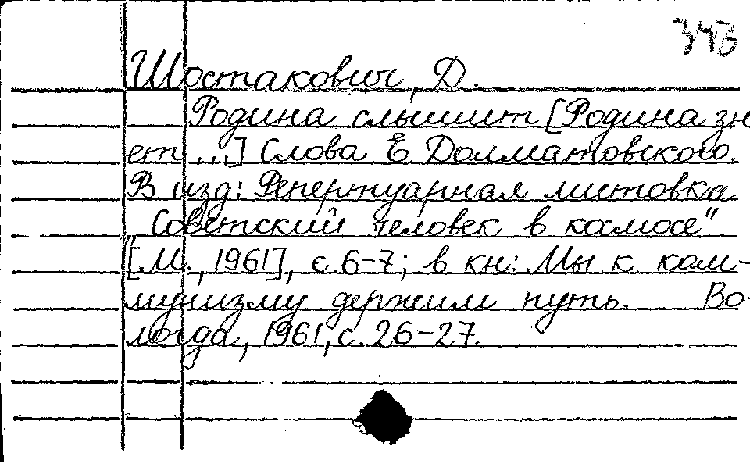 343
Шостакович, Д.
Родина слышит [Родина зн
ет...] Слова Е. Долматовского.
В изд: Репертуарная листовка
„Советский человек в космосе"
[М., 1961], с. 6-7; в кн: Мы к ком-
мунизму держим путь. Во-
логда, 1961, с. 26-27.